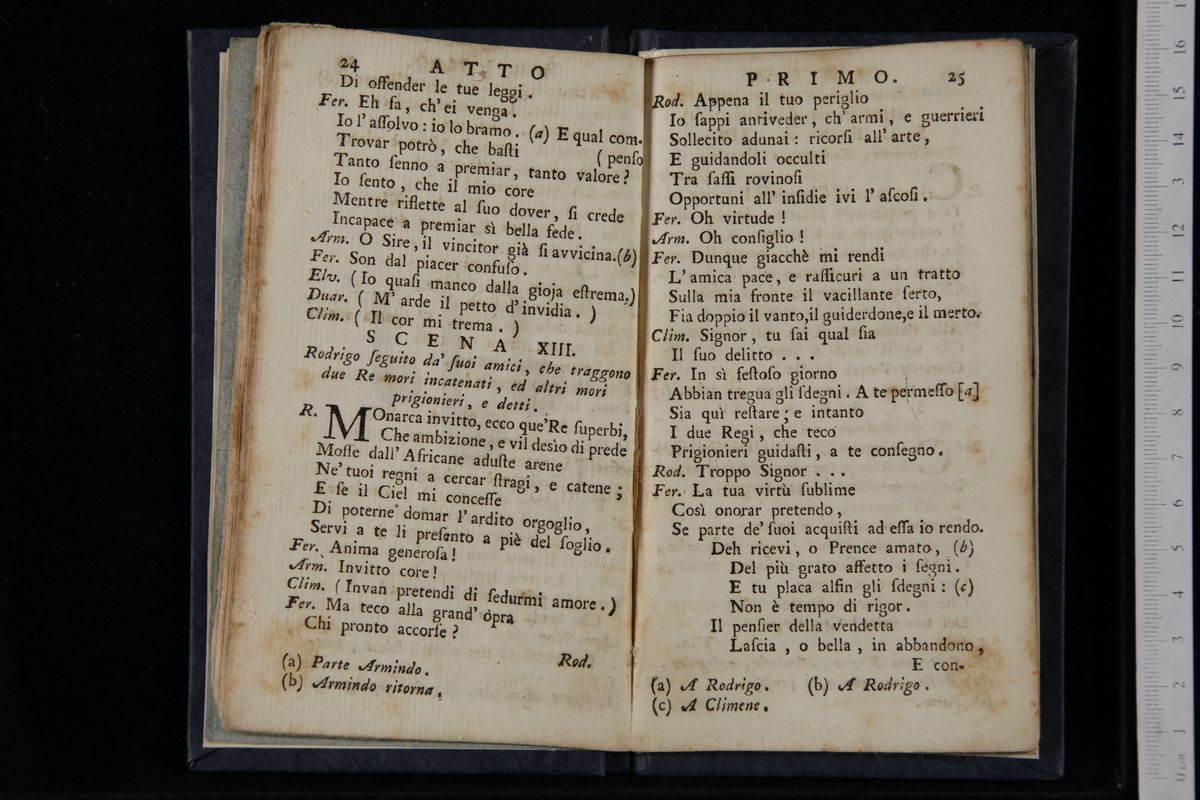 24 ATTO
Di offender le tue leggi.
Fer. Eh fa, ch'ei venga.
Io l'aſſolvo: io lo bramo. (a) E qual com-
Trovar potrò, che baſti (penſo
Tanto ſenno a premiar, tanto valore?
Io ſento, che il mio core
Mentre riflette al ſuo dover, ſi crede
Incapace a premiar sì bella fede.
Arm. O Sire, il vincitor già ſi avvicina.(b)
Fer. Son dal piacer confuſo.
Elv. (Io quaſi manco dalla gioja eſtrema.)
Duar. (M'arde il petto d'invidia.)
Clim. (Il cor mi trema.)
SCENA XIII.
Rodrigo ſeguito da' ſuoi amici, che traggono
due Re mori incatenati, ed altri mori
prigionieri, e detti.
R. MOnarca invitto, ecco que' Re ſuperbi,
Che ambizione, e vil desìo di prede
Moſſe dall'Africane aduſte arene
Ne' tuoi regni a cercar ſtragi, e catene;
E ſe il Ciel mi conceſſe
Di poterne domar l'ardito orgoglio,
Servi a te li preſento a piè del ſoglio.
Fer. Anima generoſa!
Arm. Invitto core!
Clim. (Invan pretendi di ſedurmi amore.)
Fer. Ma teco alla grand' òpra
Chi pronto accorſe?
Rod.
(a) Parte Armindo.
(b) Armindo ritorna.
PRIMO. 25
Rod. Appena il tuo periglio
Io ſappi antiveder, ch'armi, e guerrieri
Sollecito adunai: ricorſi all'arte,
E guidandoli occulti
Tra ſaſſi rovinoſi
Opportuni all'inſidie ivi l'aſcoſi.
Fer. Oh virtude!
Arm. Oh conſiglio!
Fer. Dunque giacchè mi rendi
L'amica pace, e raſſicuri a un tratto
Sulla mia fronte il vacillante ſerto,
Fia doppio il vanto,il guiderdone,e il merto.
Clim. Signor, tu ſai qual ſia
Il ſuo delitto . . .
Fer. In sì feſtoſo giorno
Abbian tregua gli ſdegni. A te permeſſo [a]
Sia quì reſtare; e intanto
I due Regi, che teco
Prigionieri guidaſti, a te conſegno.
Rod. Troppo Signor . . .
Fer. La tua virtù ſublime
Così onorar pretendo,
Se parte de' ſuoi acquiſti ad eſſa io rendo.
Deh ricevi, o Prence amato, (b)
Del più grato affetto i ſegni.
E tu placa alfin gli ſdegni: (c)
Non è tempo di rigor.
Il penſier della vendetta
Laſcia, o bella, in abbandono,
E con-
(a) A Rodrigo. (b) A Rodrigo.
(c) A Climene.
1 2 3 4 5 6 7 8 9 10 11 12 13 14 15 16
cm